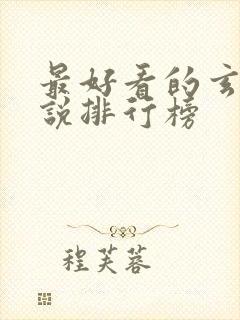 最好看的玄
说排行榜
程芙蓉